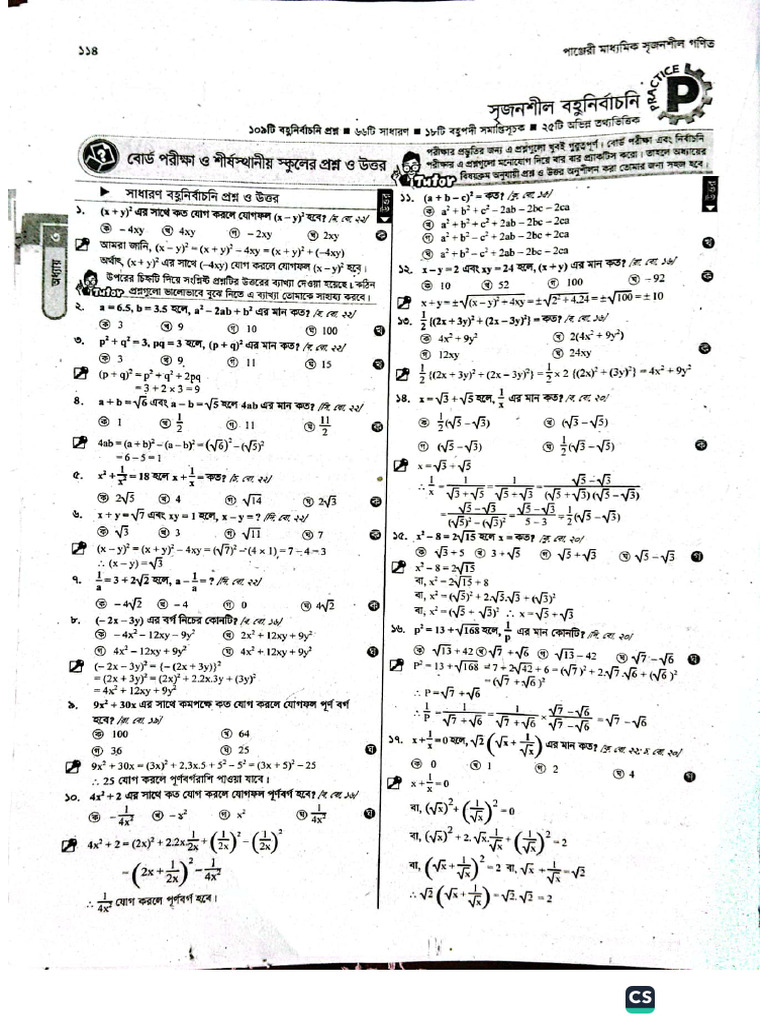 ১১৪
পাঞ্জেরী মাধ্যমিক সৃজনশীল গণিত
সৃজনশীল বহুনির্বাচনি
PRACTICE
P
১০৯টি বহুনির্বাচনি প্রশ্ন ■ ৬৬টি সাধারণ ■ ১৮টি বহুপদী সমাপ্তিসূচক ■ ২৫টি অভিন্ন তথ্যভিত্তিক
বোর্ড পরীক্ষা ও শীর্ষস্থানীয় স্কুলের প্রশ্ন ও উত্তর
Tutor
পরীক্ষার প্রস্তুতির জন্য এ প্রশ্নগুলো খুবই গুরুত্বপূর্ণ। বোর্ড পরীক্ষা এবং নির্বাচনি
পরীক্ষার এ প্রশ্নগুলো মনোযোগ দিয়ে বার বার প্র্যাকটিস করো। তাহলে অধ্যায়ের
বিষয়ক্রম অনুযায়ী প্রশ্ন ও উত্তর অনুশীলন করা তোমার জন্য সহজ হবে।
অধ্যায় ৩
▶ সাধারণ বহুনির্বাচনি প্রশ্ন ও উত্তর
উত্তর
১. (x + y)² এর সাথে কত যোগ করলে যোগফল (x – y)² হবে? [ম. বো. ২২]
ক – 4xy খ 4xy গ – 2xy ঘ 2xy ক
আমরা জানি, (x – y)² = (x + y)² – 4xy = (x + y)² + (–4xy)
অর্থাৎ, (x + y)² এর সাথে (–4xy) যোগ করলে যোগফল (x – y)² হবে।
উপরের চিহ্নটি দিয়ে সংশ্লিষ্ট প্রশ্নটির উত্তরের ব্যাখ্যা দেওয়া হয়েছে। কঠিন
Tutor প্রশ্নগুলো ভালোভাবে বুঝে নিতে এ ব্যাখ্যা তোমাকে সাহায্য করবে।
২. a = 6.5, b = 3.5 হলে, a² – 2ab + b² এর মান কত?
ক 3 খ 9 গ 10 ঘ 100
৩. p² + q² = 3, pq = 3 হলে, (p + q)² এর মান কত?
ক 3 খ 9 গ 11 ঘ 15 খ
(p + q)² = p² + q² + 2pq
= 3 + 2 × 3 = 9
৪. a + b = √6 এবং a – b = √5 হলে 4ab এর মান কত? [দি. বো. ২২]
ক 1 খ 1/2 গ 11 ঘ 11/2 ক
4ab = (a + b)² – (a – b)² = (√6)² – (√5)²
= 6 – 5 = 1
৫. x² + 1/x² = 18 হলে x + 1/x = কত?
ক 2√5 খ 4 গ √14 ঘ 2√3 ক
৬. x + y = √7 এবং xy = 1 হলে, x – y = ?
ক √3 খ 3 গ √11 ঘ 7 ক
(x – y)² = (x + y)² – 4xy = (√7)² – (4 × 1) = 7 – 4 = 3
∴ (x – y) = √3
৭. 1/a = 3 + 2√2 হলে, a – 1/a = ?
ক – 4√2 খ – 4 গ 0 ঘ 4√2 ক
৮. (– 2x – 3y) এর বর্গ নিচের কোনটি?
ক – 4x² – 12xy – 9y² খ 2x² + 12xy + 9y²
গ 4x² – 12xy + 9y² ঘ 4x² + 12xy + 9y² ঘ
(– 2x – 3y)² = {– (2x + 3y)}²
= (2x + 3y)² = (2x)² + 2.2x.3y + (3y)²
= 4x² + 12xy + 9y²
৯. 9x² + 30x এর সাথে কমপক্ষে কত যোগ করলে যোগফল পূর্ণ বর্গ
হবে?
ক 100 খ 64
গ 36 ঘ 25 ঘ
9x² + 30x = (3x)² + 2.3x.5 + 5² – 5² = (3x + 5)² – 25
∴ 25 যোগ করলে পূর্ণবর্গরাশি পাওয়া যাবে।
১০. 4x² + 2 এর সাথে কত যোগ করলে যোগফল পূর্ণবর্গ হবে?
ক – 1/4x² খ – x² গ x² ঘ 1/4x² ঘ
4x² + 2 = (2x)² + 2.2x.1/2x + (1/2x)² – (1/2x)²
= (2x + 1/2x)² – 1/4x²
∴ 1/4x² যোগ করলে পূর্ণবর্গ হবে।
১১. (a + b – c)² = কত?
ক a² + b² + c² – 2ab – 2bc – 2ca
খ a² + b² + c² + 2ab – 2bc – 2ca
গ a² + b² – c² + 2ab – 2bc – 2ca
ঘ a² + b² – c² – 2ab – 2bc – 2ca খ
১২. x – y = 2 এবং xy = 24 হলে, (x + y) এর মান কত?
ক 10 খ 52 গ 100 ঘ – 92 ক
x + y = ±√(x – y)² + 4xy = ±√2² + 4.24 = ±√100 = ± 10
১৩. 1/2 {(2x + 3y)² + (2x – 3y)²} = কত?
ক 4x² + 9y² খ 2(4x² + 9y²)
গ 12xy ঘ 24xy ক
1/2 {(2x + 3y)² + (2x – 3y)²} = 1/2 × 2 {(2x)² + (3y)²} = 4x² + 9y²
১৪. x = √3 + √5 হলে, 1/x এর মান কত?
ক 1/2(√5 – √3) খ (√3 – √5)
গ (√5 – √3) ঘ 1/2(√3 – √5) ক
x = √3 + √5
∴ 1/x = 1/√3 + √5 = 1/√5 + √3 = √5 – √3/(√5 + √3)(√5 – √3)
= √5 – √3/(√5)² – (√3)² = √5 – √3/5 – 3 = 1/2(√5 – √3)
১৫. x² – 8 = 2√15 হলে x = কত?
ক √3 + 5 খ 3 + √5 গ √5 + √3 ঘ √5 – √5 গ
x² – 8 = 2√15
বা, x² = 2√15 + 8
বা, x² = (√5)² + 2.√5.√3 + (√3)²
বা, x² = (√5 + √3)² ∴ x = √5 + √3
১৬. p² = 13 + √168 হলে, 1/p এর মান কোনটি?
ক √13 + 42 খ √7 + √6 গ √13 – 42 ঘ √7 – √6 ঘ
P² = 13 + √168 = 7 + 2√42 + 6 = (√7)² + 2.√7.√6 + (√6)²
= (√7 + √6)²
∴ P = √7 + √6
∴ 1/P = 1/√7 + √6 = 1/√7 + √6 × √7 – √6/√7 – √6 = √7 – √6
১৭. x + 1/x = 0 হলে, √2 (√x + 1/√x) এর মান কত?
ক 0 খ 1 গ 2 ঘ 4 গ
x + 1/x = 0
বা, (√x)² + (1/√x)² = 0
বা, (√x)² + 2.√x.1/√x + (1/√x)² = 2
বা, (√x + 1/√x)² = 2 বা, √x + 1/√x = √2
∴ √2 (√x + 1/√x) = √2.√2 = 2
CS